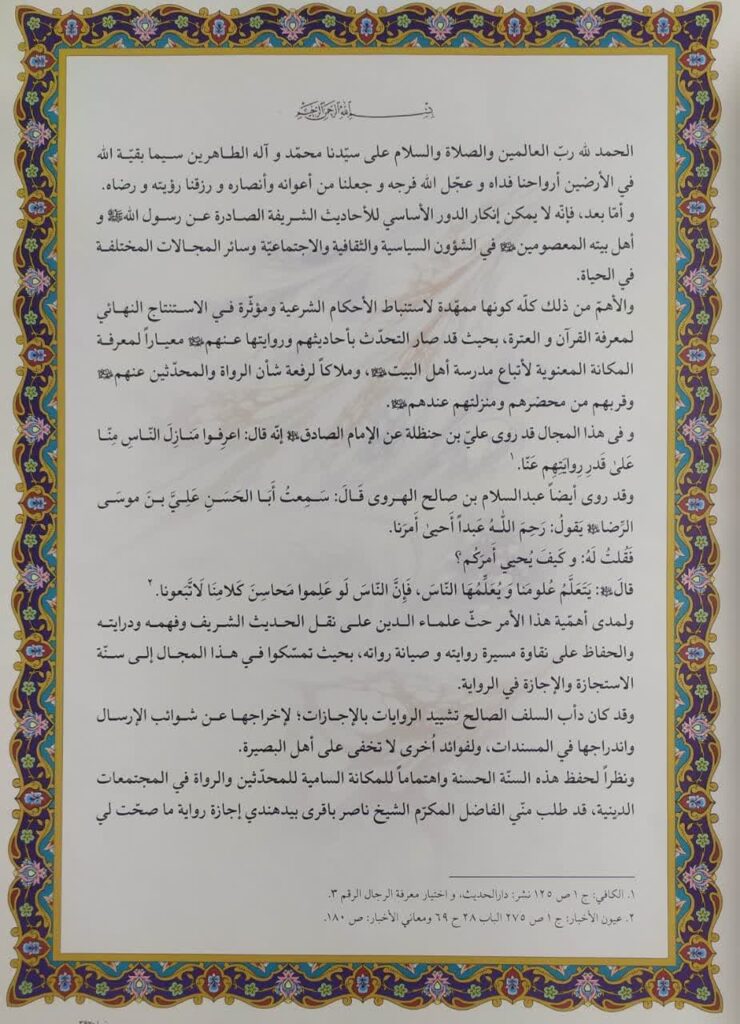 بسم الله الرحمن الرحيم
الحمد لله ربّ العالمين والصلاة والسلام على سيّدنا محمّد و آله الطاهرين سيما بقيّة الله
في الأرضين أرواحنا فداه و عجّل الله فرجه و جعلنا من أعوانه وأنصاره و رزقنا رؤيته و رضاه.
و أمّا بعد، فإنّه لا يمكن إنكار الدور الأساسي للأحاديث الشريفة الصادرة عن رسول الله ﷺ و
أهل بيته المعصومين في الشؤون السياسية والثقافية والاجتماعيّة وسائر المجالات المختلفة
في الحياة.
والأهمّ من ذلك كلّه كونها ممهّدة لاستنباط الأحكام الشرعية ومؤثّرة في الاستنتاج النهائي
لمعرفة القرآن و العترة، بحيث قد صار التحدّث بأحاديثهم وروايتها عنهم معياراً لمعرفة
المكانة المعنوية لأتباع مدرسة أهل البيت، وملاكاً لرفعة شأن الرواة والمحدّثين عنهم
وقربهم من محضرهم ومنزلتهم عندهم.
و فى هذا المجال قد روى عليّ بن حنظلة عن الإمام الصادق إنّه قال: اعرِفوا مَنازِلَ النّاسِ مِنّا
عَلىٰ قَدرِ رِوايَتِهِم عَنّا.١
وقد روى أيضاً عبدالسلام بن صالح الهروى قَالَ: سَمِعتُ أَبَا الحَسَنِ عَلِيَّ بنَ موسَى
الرِّضا يَقولُ: رَحِمَ اللّهُ عَبداً أَحيىٰ أَمرَنا.
فَقُلتُ لَهُ: و كَيفَ يُحيي أَمرَكُم؟
قالَ: يَتَعَلَّمُ عُلومَنا وَ يُعَلِّمُهَا النّاسَ، فَإِنَّ النّاسَ لَو عَلِموا مَحاسِنَ كَلامِنَا لَاتَّبَعونا.٢
ولمدى أهمّية هذا الأمر حثّ علماء الدين على نقل الحديث الشريف وفهمه ودرايته
والحفاظ على نقاوة مسيرة روايته و صيانة رواته، بحيث تمسّكوا في هذا المجال إلى سنّة
الاستجازة والإجازة في الرواية.
وقد كان دأب السلف الصالح تشييد الروايات بالإجازات؛ لإخراجها عن شوائب الإرسال
واندراجها في المسندات، ولفوائد اُخرى لا تخفى على أهل البصيرة.
ونظراً لحفظ هذه السنّة الحسنة واهتماماً للمكانة السامية للمحدّثين والرواة في المجتمعات
الدينية، قد طلب منّي الفاضل المكرّم الشيخ ناصر باقرى بيدهندي إجازة رواية ما صحّت لي
١. الكافي: ج ١ ص ١٢٥ نشر: دارالحديث، و اختيار معرفة الرجال الرقم ٣.
٢. عيون الأخبار: ج ١ ص ٢٧٥ الباب ٢٨ ح ٦٩ ومعاني الأخبار: ص ١٨٠.